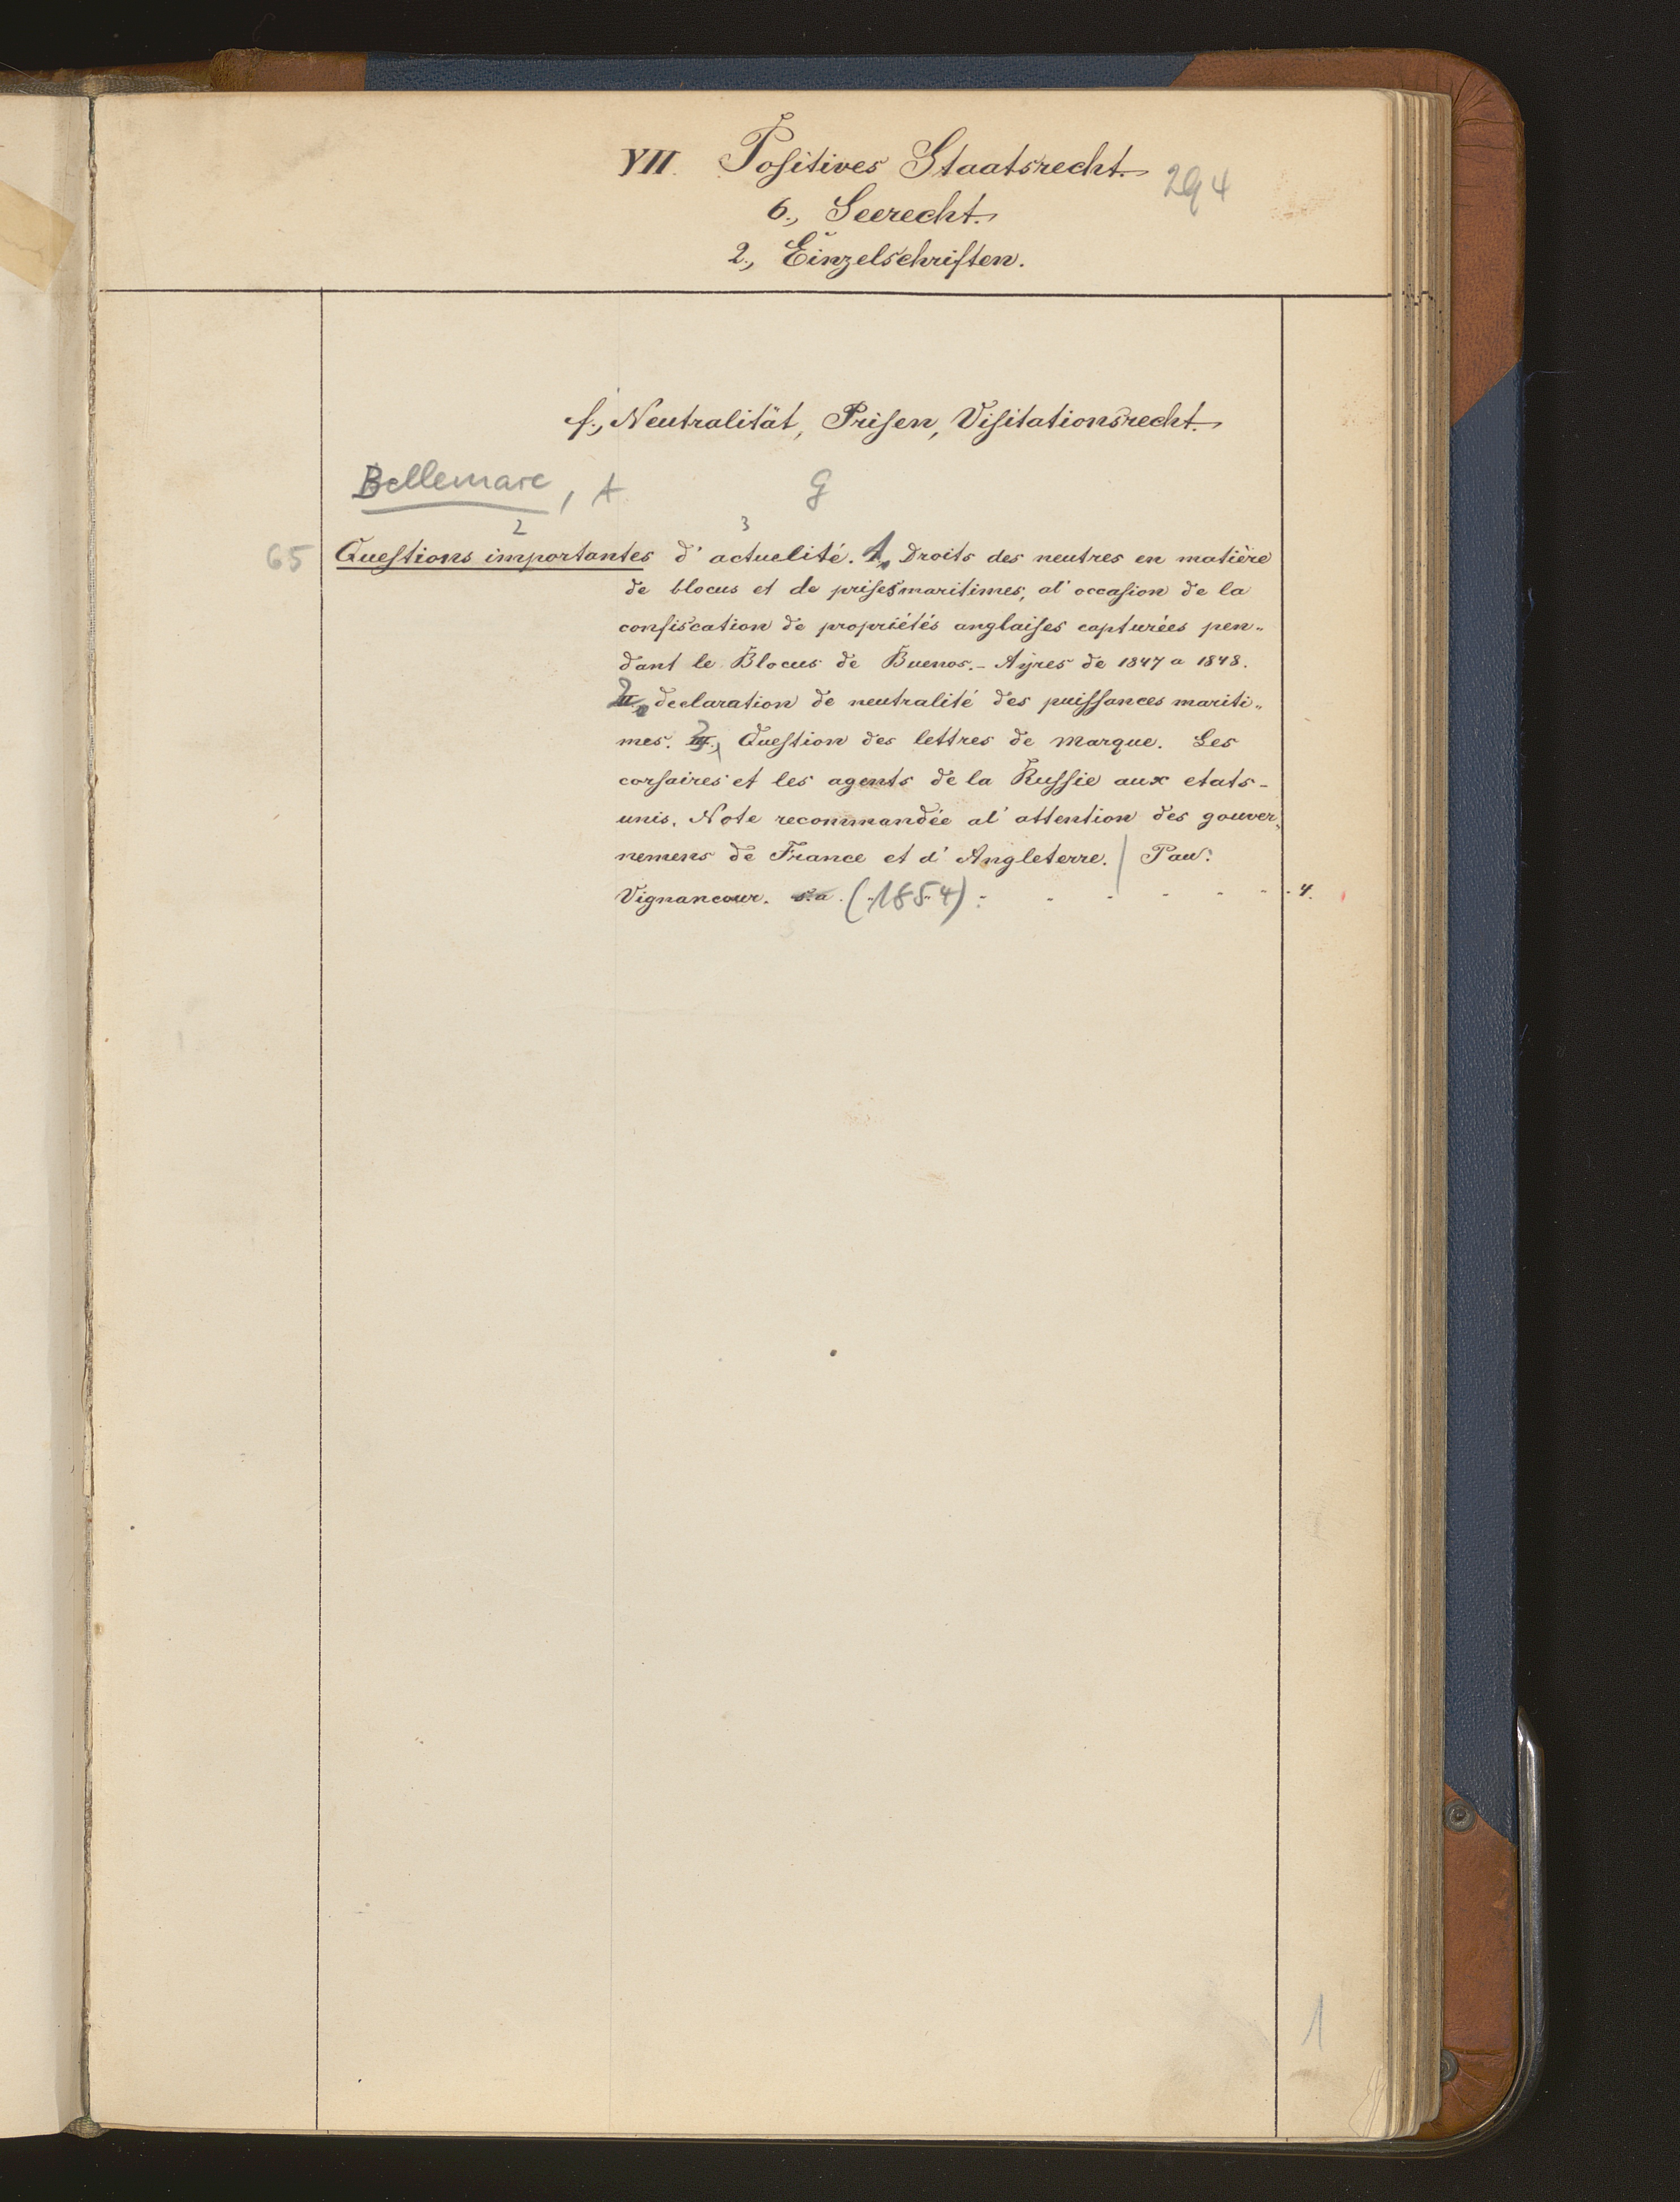 VII. Positives Staatsrecht. 294
6., Seerecht.
2., Einzelschriften.
f., Neutralität, Prisen, Visitationsrecht.
Bellemare, A G
2 3
65 Questions importantes d'actuelité. 1, Droits des neutres en matière
de blocus et de prises maritimes, al'occasion de la
confiscation de propriétés anglaises capturées pen„
dant le Blocus de Buenos.-Ayres de 1847 a 1848.
2, declaration de neutralité des puissances mariti„
mes. 3, Question des lettres de marque. Les
corsaires et les agents de la Russie aux etats-
unis. Note recommandée al'attention des gouver„
nemens de France et d'Angleterre. | Pau:
Vignancour. s.a. (1854) 4.
1